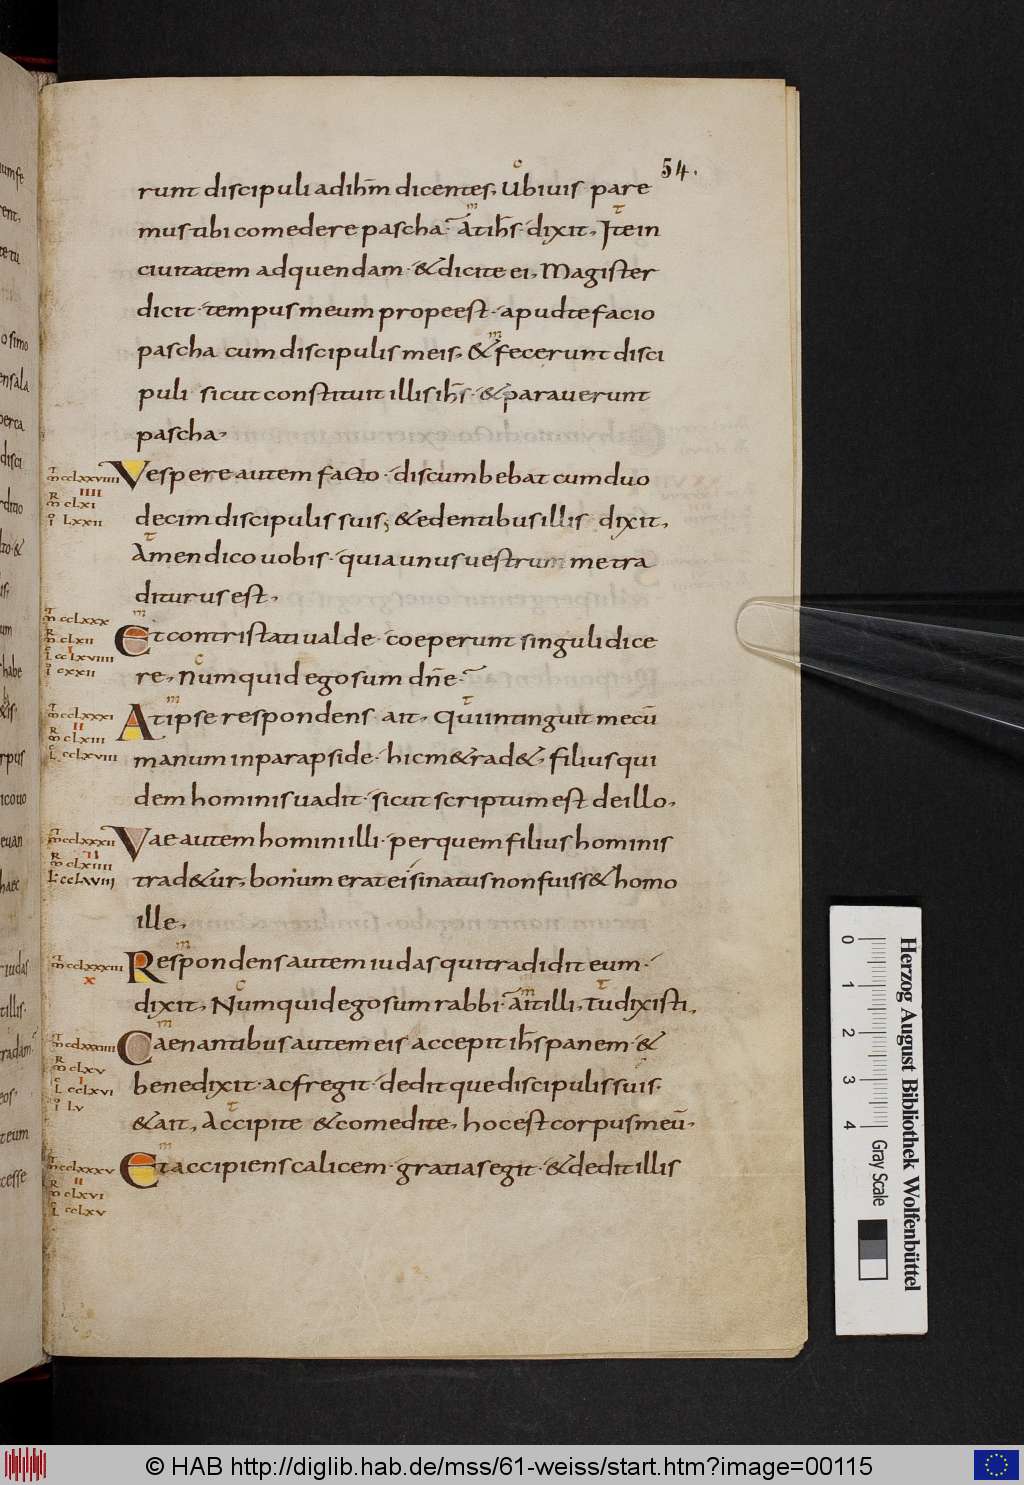 54.
runt discipuli adihm̄ dicentes, Ubi uis pare
mus tibi comedere pascha. āt ihs̄ dixit, Ite in
ciuitatem ad quendam · & dicite ei, Magister
dicit · tempus meum prope est · apud te facio
pascha cum discipulis meis, & fecerunt disci
puli sicut constituit illis ihs̄ · & parauerunt
pascha,
Vespere autem facto · discumbebat cum duo
decim discipulis suis; & edentibus illis dixit,
Amen dico uobis · quia unus uestrum me tra
diturus est,
Et contristati ualde · coeperunt singuli dice
re, Numquid ego sum dn̄e ·
At ipse respondens ait, Qui intinguit mecū
manum in parapside · hic me tradet, filius qui
dem hominis uadit · sicut scriptum est de illo,
Vae autem homini illi · per quem filius hominis
trad&ur, bonum erat ei si natus non fuiss& homo
ille,
Respondens autem iudas qui tradidit eum ·
dixit, Numquid ego sum rabbi · ait illi, Tu dixisti,
Caenantibus autem eis accepit ihs̄ panem · &
benedixit · ac fregit · dedit que discipulis suis ·
& ait, Accipite & comedite, hoc est corpus meū ·
Et accipiens calicem · gratias egit · & dedit illis
0 1 2 3 4
Gray Scale
Herzog August Bibliothek Wolfenbüttel
© HAB http://diglib.hab.de/mss/61-weiss/start.htm?image=00115